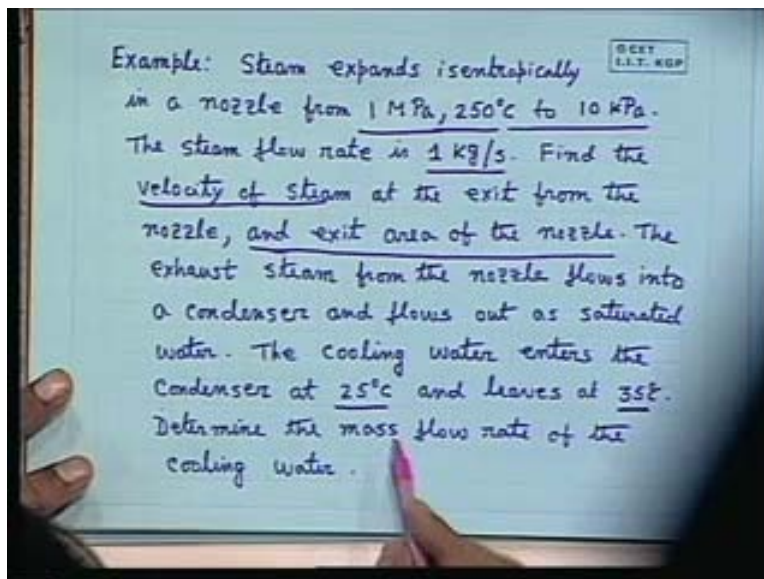 GCET
I.I.T. KGP
Example: Steam expands isentropically
in a nozzle from 1 MPa, 250°C to 10 kPa.
The steam flow rate is 1 kg/s. Find the
velocity of steam at the exit from the
nozzle, and exit area of the nozzle. The
exhaust steam from the nozzle flows into
a condenser and flows out as saturated
water. The cooling water enters the
condenser at 25°C and leaves at 35°C.
Determine the mass flow rate of the
cooling water.